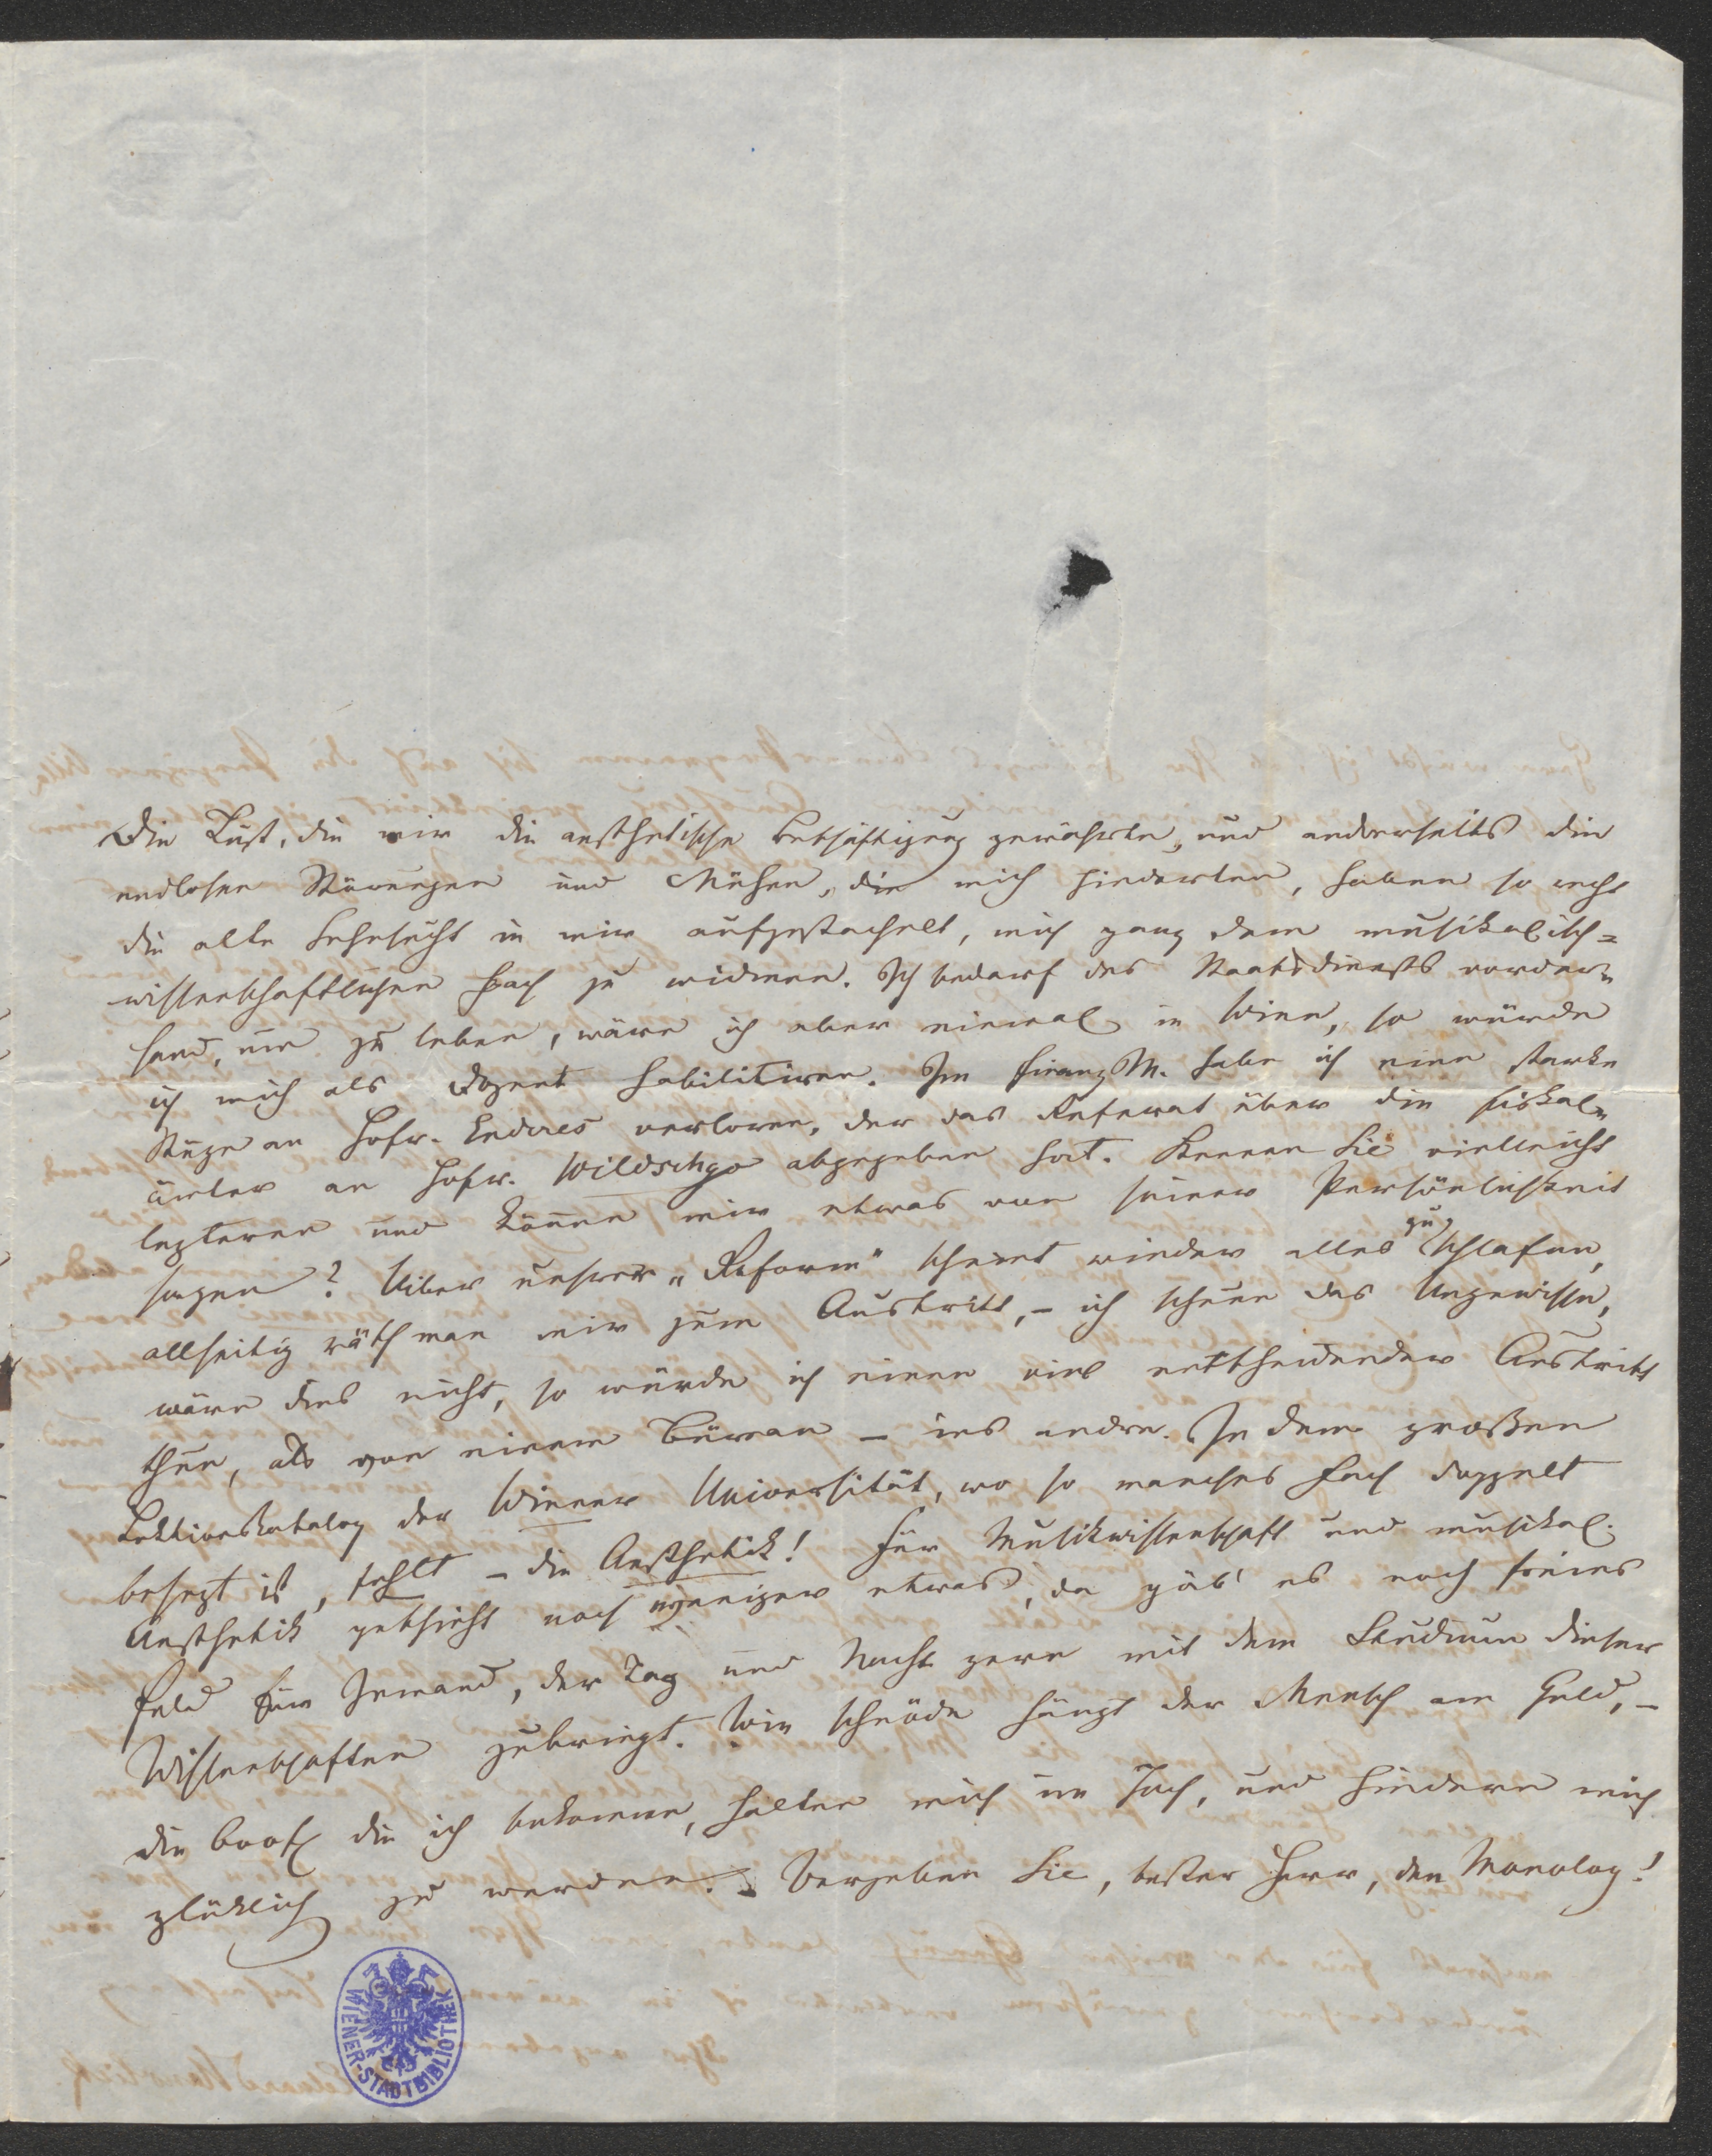 Die Lust, die mir die aesthetische Betschäftigung gewährte, und anderseits die
endlosen Störungen und Mühen, die mich hinderten, haben so recht
die alte Sehnsucht in mir aufgestachelt, mich ganz dem musikalisch=
wissenschaftlichen Fach zu widmen. Ich bedarf des Staatsdiensts vorder=
hand, um zu leben, wäre ich aber einmal in Wien, so würde
ich mich als Dozent habilitiren. Im Finanz M. habe ich eine starke
Stüze an Hofr. Enderes verloren, der das Referat über die Fiskal=
ämter an Hofr. Wildschgo abgegeben hat. Kennen Sie vielleicht
lezteren und können mir etwas von seiner Persönlichkeit
sagen? Ueber unsrer „Reform" scheint wieder alles zu schlafen,
allseitig räth man mir zum Austritt, – ich scheue das Ungewisse,
wäre dies nicht, so würde ich einen viel entscheidender Austritt
thun, als von einem Büreau – ins andre. In dem großen
Lektionskatalog der Wiener Universität, wo so manches Fach doppelt
besezt ist, fehlt – die Aesthetik! Für Musikwissenschaft und musikal.
Aesthetik getchieht noch weniger etwas, da gäb' es noch freies
Feld für Jemand, der Tag und Nacht gern mit dem Studium dieser
Wissenschaften zubringt. Wie schnöde hängt der Mensch am Geld, –
die 600f die ich bekomme, halten mich im Joch, und hindern mich
glüklich zu werden. Vergeben Sie, bester Herr, den Monolog!
WIENER-STADTBIBLIOTHEK